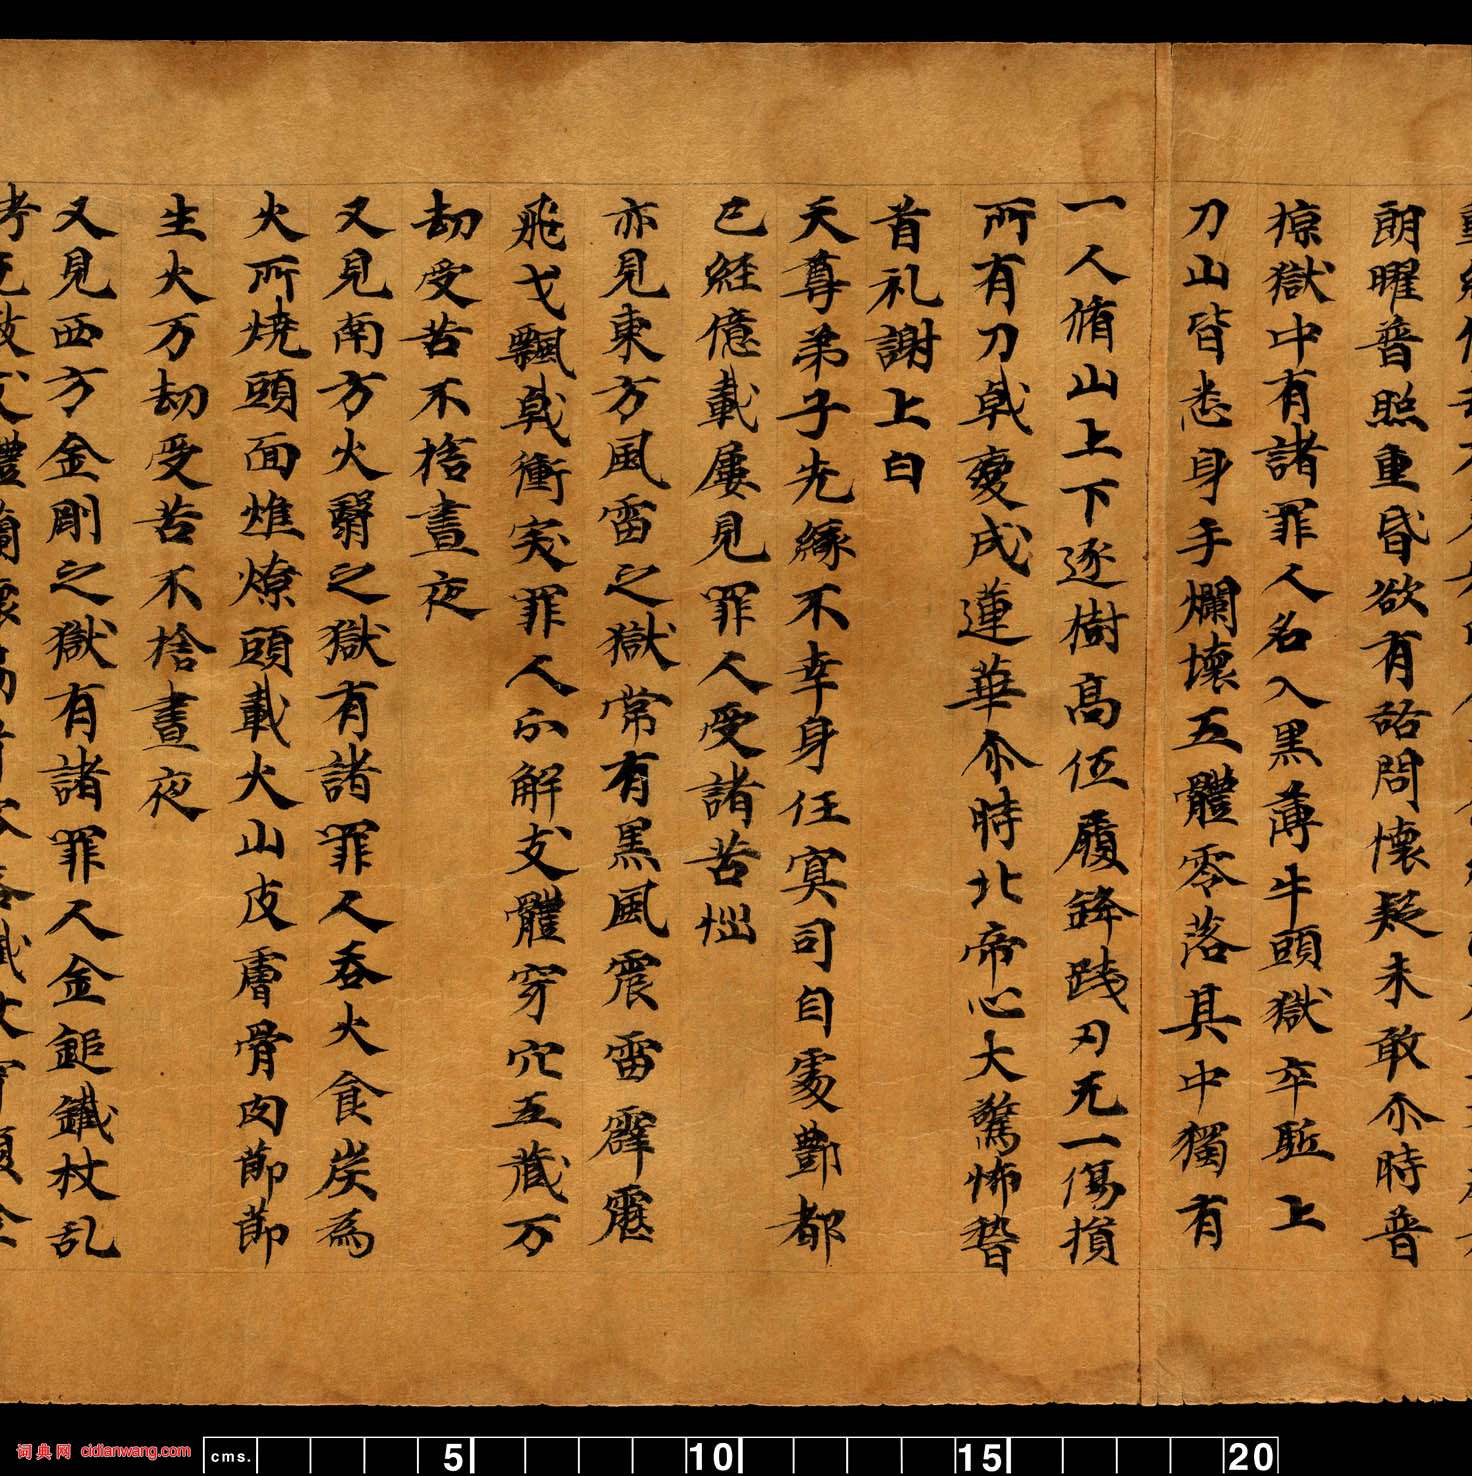 朗曜普照重昏欲有諮問懷疑未敢尒時普
掠獄中有諸罪人名入黑薄牛頭獄卒駈上
刀山皆悉身手爛壞五體零落其中獨有
一人脩山上下逐樹高伍履鋒踐刃无一傷損
所有刀戟變成蓮華尒時北帝心大驚怖稽
首礼謝上白
天尊弟子先緣不幸身任冥司自處酆都
已經億載屢見罪人受諸苦惱
亦見東方風雷之獄常有黑風震雷霹靂
飛戈飄戟衝突罪人分解支體穿穴五藏万
劫受苦不捨晝夜
又見南方火翳之獄有諸罪人吞火食炭為
火所燒頭面燋燎頭載火山皮膚骨肉節節
生火万劫受苦不捨晝夜
又見西方金剛之獄有諸罪人金鎚鐵杖乱
考
cms. 5 10 15 20
词典网 cidianwang.com